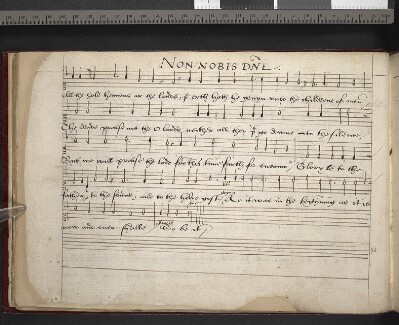 NON NOBIS DNE
All the hole heavens ar the lordes, ye erth hath he gewyn unto the childerne of men,
The deade praise not the O lorde, neither all they yt go downe into the silence,
But we will praise the lord for this time furth for evermo, Glory be to the
father, to the sonne, and to the holie gost, As it was in the beginning as it is
now and ever shalbe So be it,